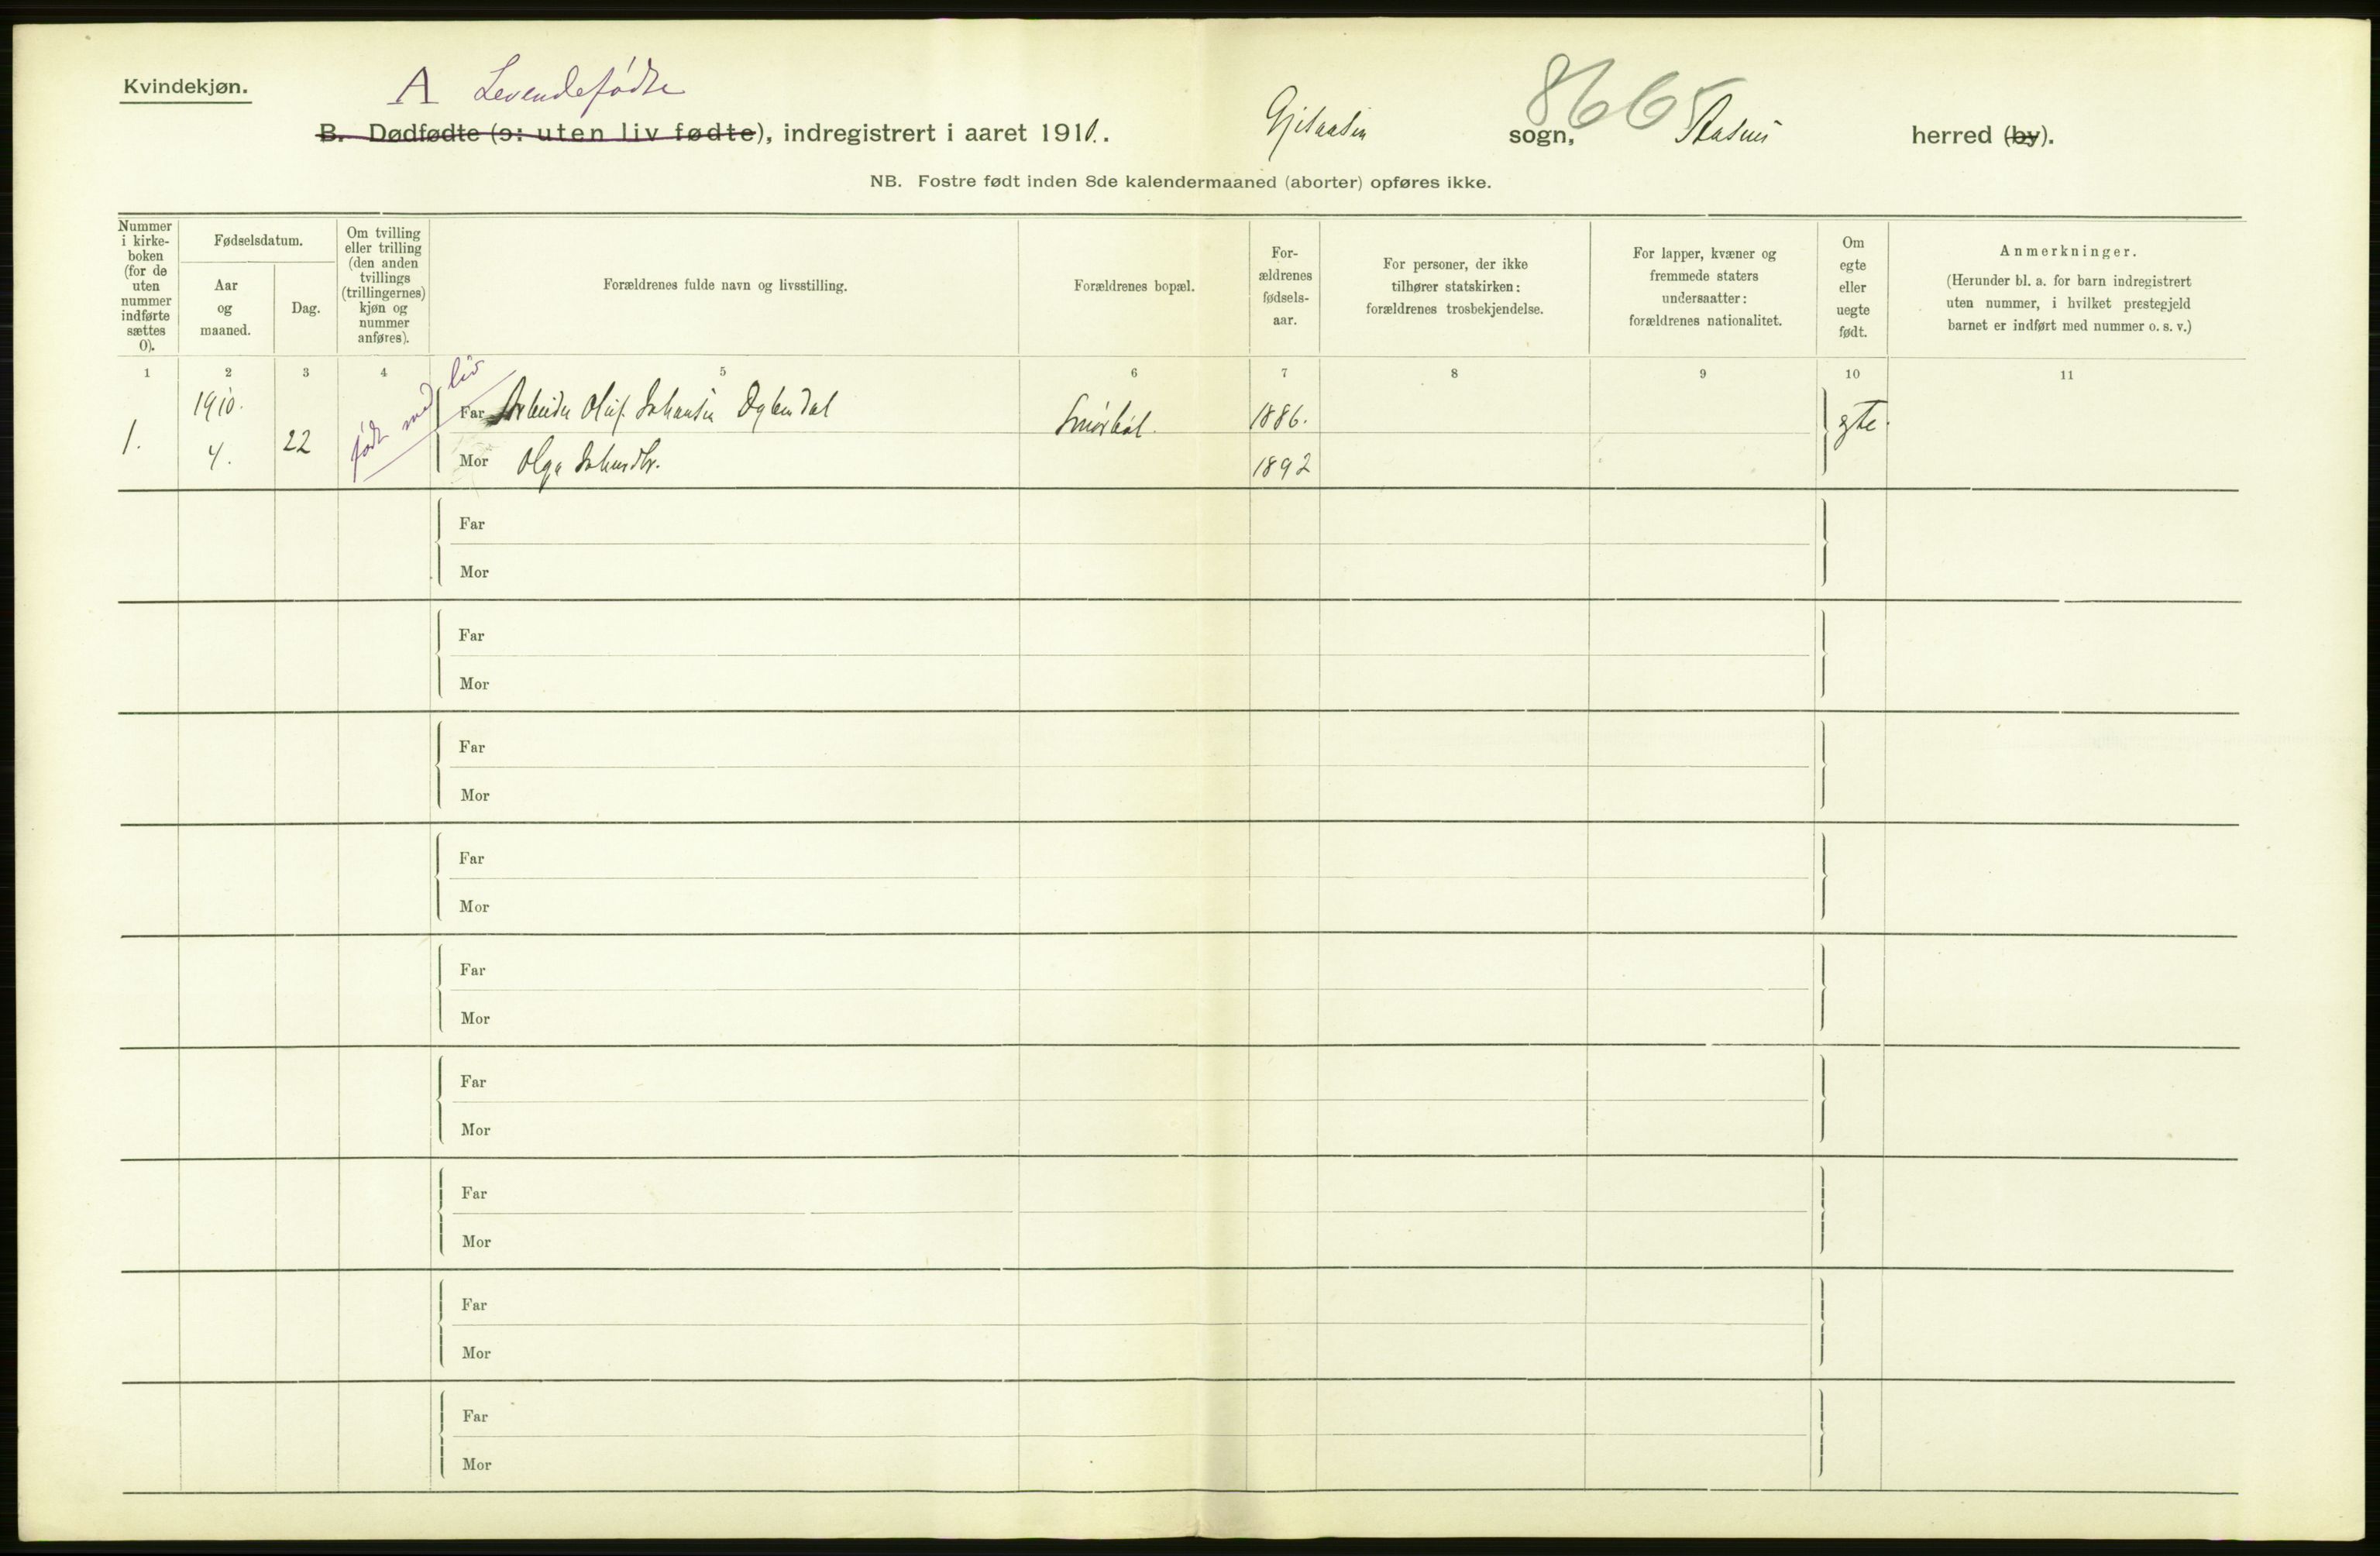 Kvindekjøn.
A Levendefødte
8665
B. Dødfødte (ɔ: uten liv fødte), indregistrert i aaret 1910.. Gjesaasen sogn, Aasnes herred (by).
NB. Fostre født inden 8de kalendermaaned (aborter) opføres ikke.
Nummer
i kirke-
boken
(for de
uten
nummer
indførte
sættes
0).
Fødselsdatum.
Aar
og
maaned.
Dag.
Om tvilling
eller trilling
(den anden
tvillings
(trillingernes)
kjøn og
nummer
anføres).
Forældrenes fulde navn og livsstilling.
Forældrenes bopæl.
For-
ældrenes
fødsels-
aar.
For personer, der ikke
tilhører statskirken:
forældrenes trosbekjendelse.
For lapper, kvæner og
fremmede staters
undersaatter:
forældrenes nationalitet.
Om
egte
eller
uegte
født.
Anmerkninger.
(Herunder bl. a. for barn indregistrert
uten nummer, i hvilket prestegjeld
barnet er indført med nummer o. s. v.)
1 2 3 4 5 6 7 8 9 10 11
1.
1910.
4.
22
født med liv
Far Arbeider Oluf Johansen
Smørhol.
1886.
egte.
Mor Olga Johansdtr.
1892
Far
Mor
Far
Mor
Far
Mor
Far
Mor
Far
Mor
Far
Mor
Far
Mor
Far
Mor
Far
Mor